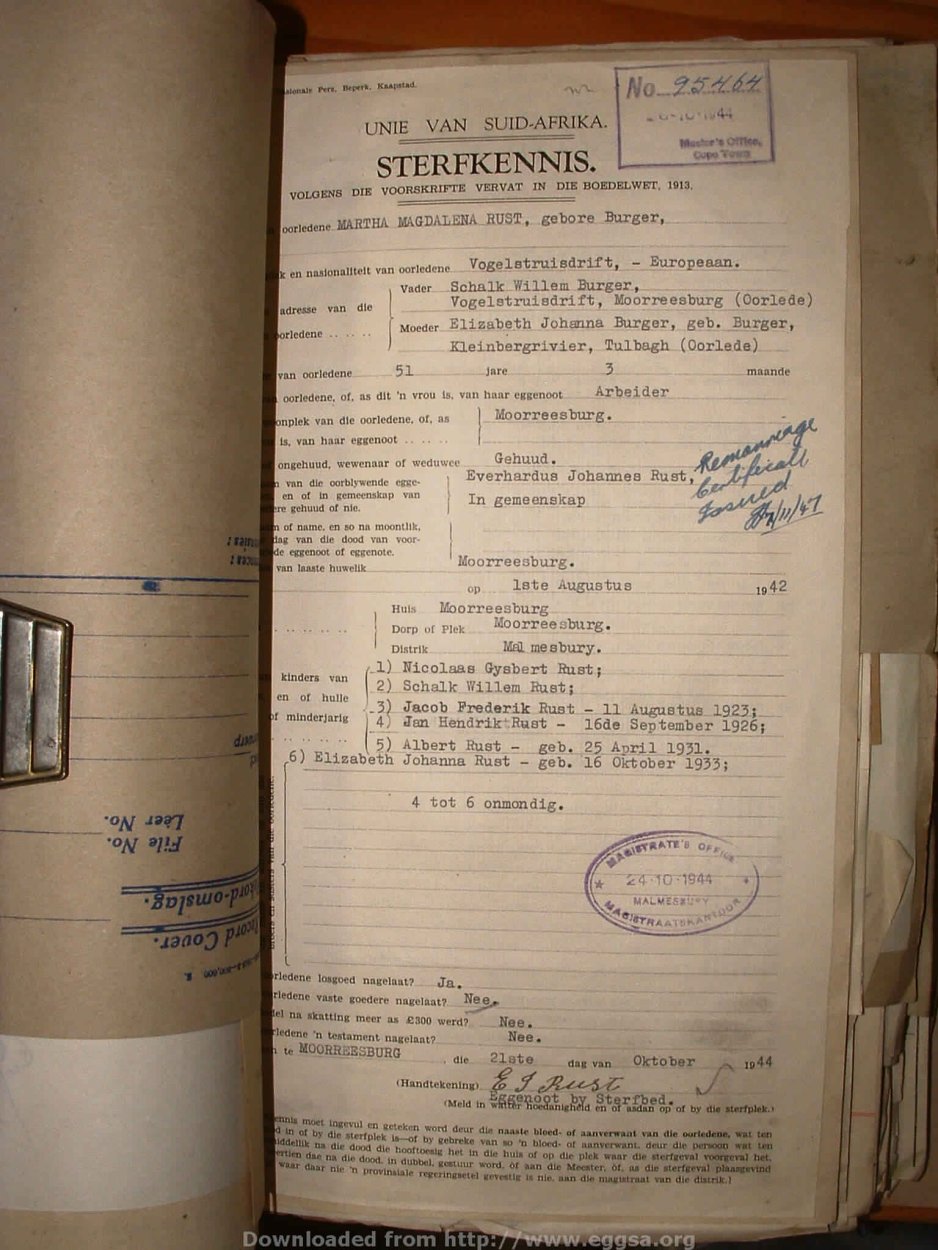 Pers, Beperk, Kaapstad.
No 95464
44
Master's Office,
Cape Town
UNIE VAN SUID-AFRIKA.
STERFKENNIS.
VOLGENS DIE VOORSKRIFTE VERVAT IN DIE BOEDELWET, 1913.
oorledene MARTHA MAGDALENA RUST, gebore Burger,
k en nasionaliteit van oorledene Vogelstruisdrift, - Europeaan.
Vader Schalk Willem Burger,
adresse van die Vogelstruisdrift, Moorreesburg (Oorlede)
oorledene Moeder Elizabeth Johanna Burger, geb. Burger,
Kleinbergrivier, Tulbagh (Oorlede)
van oorledene 51 jare 3 maande
oorledene, of, as dit 'n vrou is, van haar eggenoot Arbeider
onplek van die oorledene, of, as Moorreesburg.
is, van haar eggenoot
ongehuud, wewenaar of weduwee Gehuud.
n van die oorblywende egge- Everhardus Johannes Rust,
en of in gemeenskap van In gemeenskap
ere gehuud of nie.
Remarriage
Certificate
Issued
7/11/47
n of name, en so na moontlik,
dag van die dood van voor-
de eggenoot of eggenote.
van laaste huwelik Moorreesburg.
op 1ste Augustus 1942
Huis Moorreesburg
Dorp of Plek Moorreesburg.
Distrik Malmesbury.
kinders van 1) Nicolaas Gysbert Rust;
en of hulle 2) Schalk Willem Rust;
of minderjarig 3) Jacob Frederik Rust - 11 Augustus 1923;
4) Jan Hendrik Rust - 16de September 1926;
5) Albert Rust - geb. 25 April 1931.
6) Elizabeth Johanna Rust - geb. 16 Oktober 1933;
4 tot 6 onmondig.
MAGISTRATE'S OFFICE
24-10-1944
MALMESBURY
MAGISTRAATSKANTOOR
orledene losgoed nagelaat? Ja.
rledene vaste goedere nagelaat? Nee.
del na skatting meer as £300 werd? Nee.
rledene 'n testament nagelaat? Nee.
te MOORREESBURG, die 21ste dag van Oktober 1944
(Handtekening) E J Rust
Eggenoot by Sterfbed.
(Meld in watter hoedanigheid en of asdan op of by die sterfplek.)
ennis moet ingevul en geteken word deur die naaste bloed- of aanverwant van die oorledene, wat ten
d in of by die sterfplek is—of by gebreke van so 'n bloed- of aanverwant, deur die persoon wat ten
iddellik na die dood die hooftoesig het in die huis of op die plek waar die sterfgeval voorgeval het.
ertien dae na die dood, in dubbel, gestuur word, óf aan die Meester, óf, as die sterfgeval plaasgevind
waar daar nie 'n provinsiale regeringsetel gevestig is nie, aan die magistraat van die distrik.)
Lêer No.
File No.
kord-omslag.
Record Cover.
Downloaded from http://www.eggsa.org